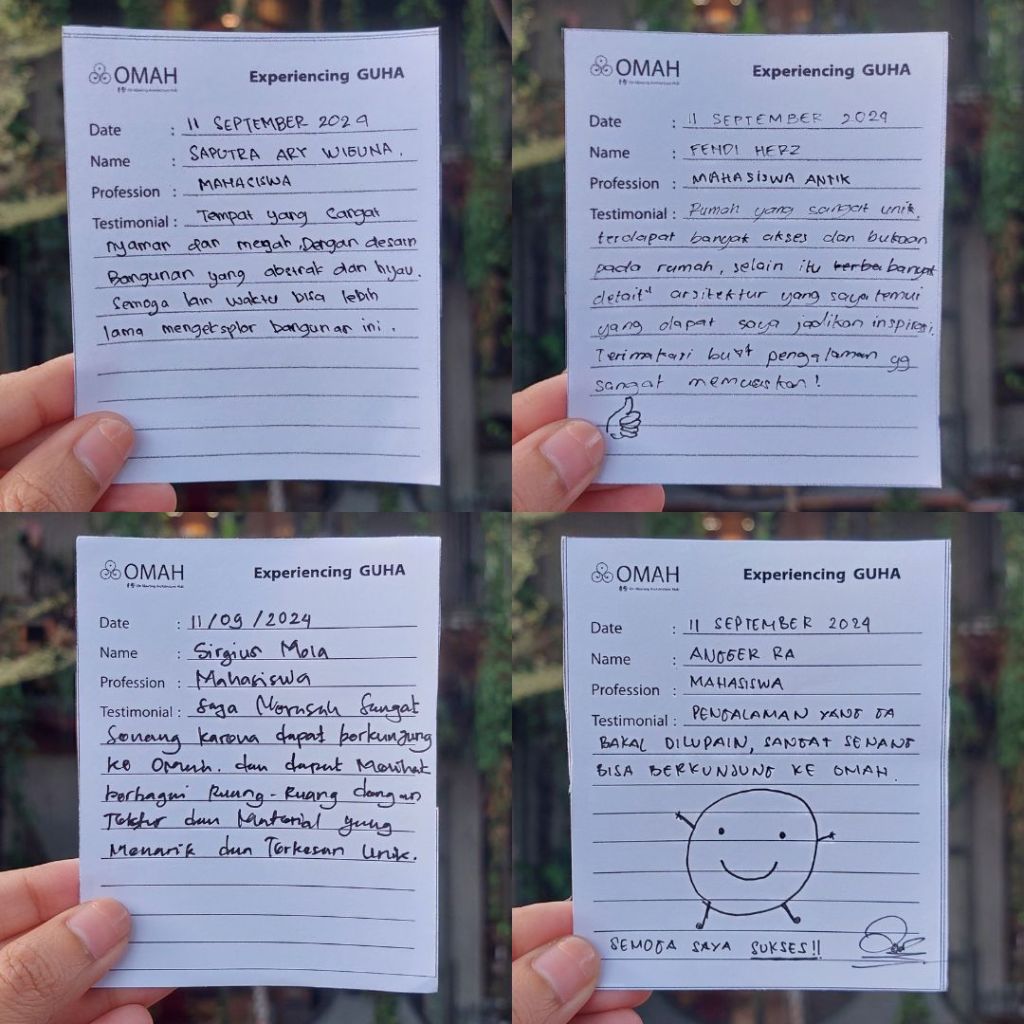 OMAH
Experiencing GUHA
Date : 11 SEPTEMBER 2024
Name : SAPUTRA ARY WIGUNA.
Profession : MAHASISWA
Testimonial : Tempat yang Sangat
nyaman dan megah. Dengan desain
Bangunan yang abstrak dan hijau.
Semoga lain waktu bisa lebih
lama mengeksplor bangunan ini.
OMAH
Experiencing GUHA
Date : 11 SEPTEMBER 2024
Name : FENDI HERZ
Profession : MAHASISWA ANTIK
Testimonial : Rumah yang sangat unik,
terdapat banyak akses dan bukaan
pada rumah, selain itu terba banyak
detail" arsitektur yang saya temui
yang dapat saya jadikan inspirasi.
Terimakasi buat pengalaman yg
sangat memuaskan!
OMAH
Experiencing GUHA
Date : 11/09/2024
Name : Sirgius Mola
Profession : Mahasiswa
Testimonial : Saya Merasah Sangat
Senang karena dapat berkunjung
ke Omah. dan dapat Melihat
berbagai Ruang-Ruang dengan
Tekstur dan Material yang
Menarik dan Terkesan Unik.
OMAH
Experiencing GUHA
Date : 11 SEPTEMBER 2024
Name : ANGGER RA
Profession : MAHASISWA
Testimonial : PENGALAMAN YANG GA
BAKAL DILUPAIN, SANGAT SENANG
BISA BERKUNJUNG KE OMAH.
SEMOGA SAYA SUKSES!!